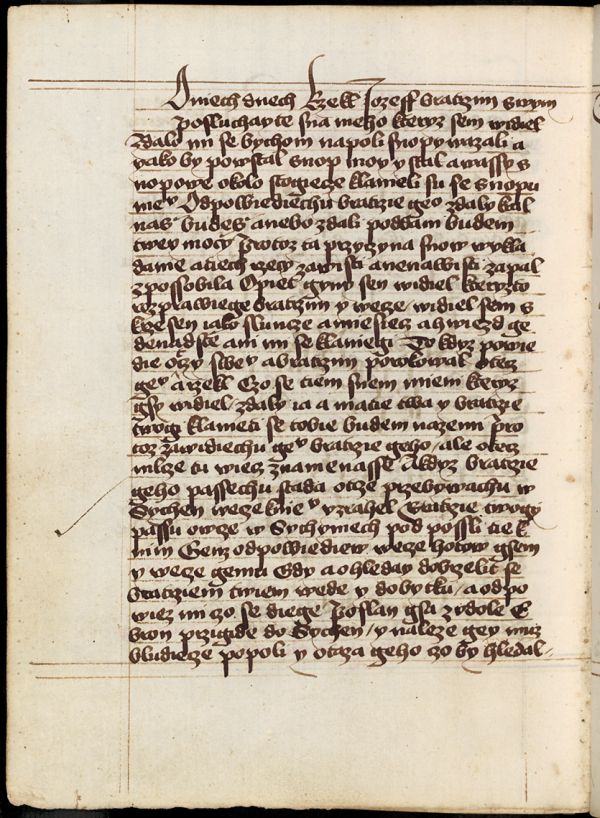 Oniech dnech Rzekl Jozeff bratrzim swym
Posluchayte sna meho kteryz sem widiel
Zdalo mi se bychom na poli snopy wazali a
yako by powstal snop moy y stal a wassy s
nopowe okolo stogiecze klaneli su se snopu
mey Odpowiediechu bratrzie geo zdaly kral
nas budes anebo zdali poddani budem
twey moczy Protoz ta przyczyna snow wykla
danie a tiech rzeczy zawisti a nenawisti zapal
zpossobila Opiet gyny sen widiel kteryzto
wzprawiege bratrzim y wecze / widiel sem s
krze sen iako sluncze a miesiecz a hwiezd ge
denadste ani mi se klaniegi To kdyz powie
die otczy swey a bratrzim powolowal otecz
gey a rzekl Czo se tiem snem mieni kteryz
gsy widiel / zdaly ia a matie twa y bratrzie
twogi klaneti se tobie budem na zemi Pro
toz zawidiechu gey bratrzie geho / ale otecz
mlcze tu wiecz znamenasse A kdyz bratrzie
geho passechu stada otcze przebywachu w
Sychen wecze knie y yzrahel Bratrzie twogy
passu owcze w Sychymech pod possli tie k
nim Genz odpowiediew wecze hotow gsem
y wecze gemu Gdy a ohleday dobrzelit se
bratrziem twiem wede y dobytku / a odpo
wiez mi czo se diege Poslan gsa z vdole E
bron przigide do Sychen / y naleze gey muz
bludiecze po poli y otaza geho czo by hledal